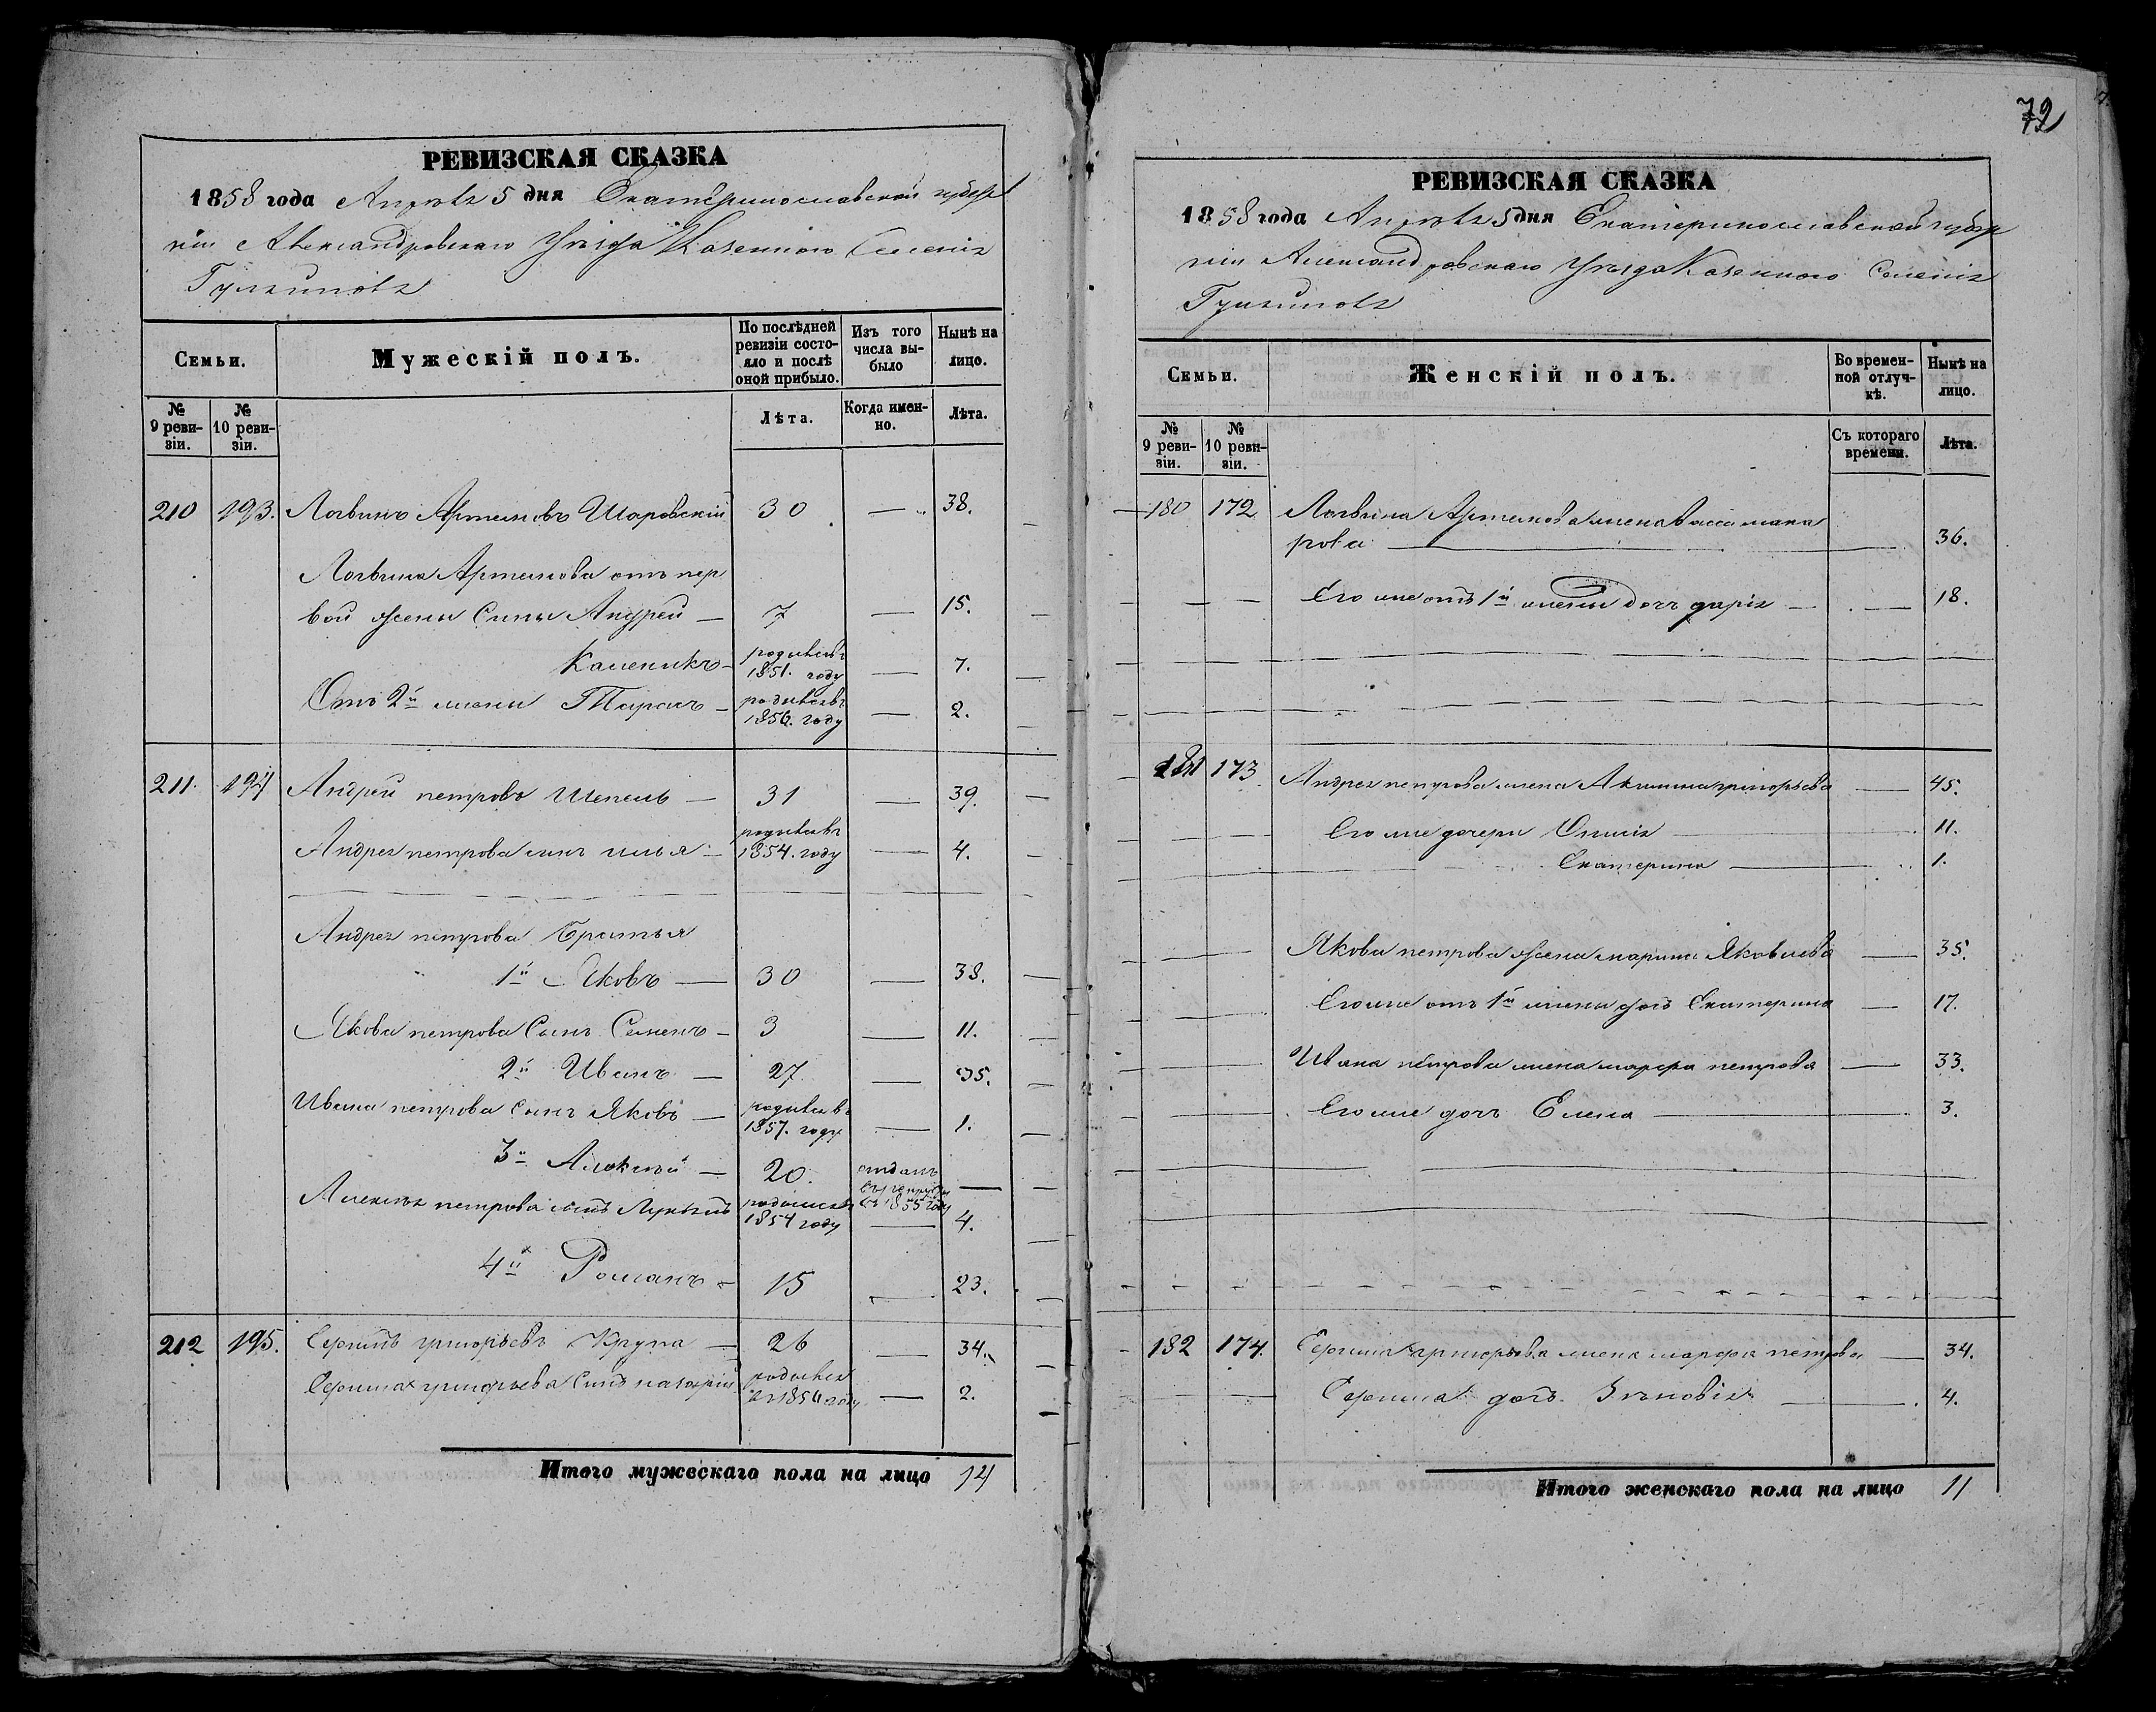 РЕВИЗСКАЯ СКАЗКА
1858 года Апрѣля 5 дня Екатеринославской губер
ніи Александровскаго Уѣзда Казеннаго Селенія
Семьи.
Мужескій полъ.
По послѣдней ревизіи состояло и послѣ оной прибыло.
Изъ того числа выбыло
Нынѣ на лицо.
№ 9 ревизіи.
№ 10 ревизіи.
Лѣта.
Когда именно.
Лѣта.
210 193. Логвинъ Артемовъ Шаровскій 30 — 38.
Логвина Артемова отъ пер
вой жены Сыны Андрей — 7 — 15.
Каленикъ — родився 1851. году — 7.
Отъ 2й жены Тарасъ — родився 1856. году — 2.
211. 194 Андрей петровъ Шепель — 31 — 39.
Андрея петрова сынъ илья — родився 1854. году — 4.
Андрея петрова Братья
1й Яковъ — 30 — 38.
Якова петрова Сынъ Семенъ — 3 — 11.
2й Иванъ — 27. — 35.
Ивана петрова сынъ Яковъ — родився 1857. году — 1.
3й Алексѣй — 20. отданъ въ рекруты въ 1855 году —
Алексѣя петрова сынъ Лукьянъ родився 1854 году — 4.
4й Романъ — 15 — 23.
212 195. Сергѣй григорьевъ Крупа — 26 — 34.
григорьева Сынъ назарій родився въ 1856 году — 2.
Итого мужескаго пола на лицо 14
72
РЕВИЗСКАЯ СКАЗКА
1858 года Апрѣля 5 дня Екатеринославской губер
ніи Александровскаго Уѣзда Казеннаго Селенія
Семьи.
Женскій полъ.
Во временной отлучкѣ.
Нынѣ на лицо.
№ 9 ревизіи.
№ 10 ревизіи.
Съ котораго времени.
Лѣта.
180 172 Логвина Артемова жена Васса мака
рова — 36.
Его же отъ 1й жены доч дарія — 18.
181 173 Андрея петрова жена Акилина григорьева — 45.
Его же дочери — 11.
Екатерина — 1.
Якова петрова жена марина Яковлева — 35.
Его же отъ 1й жены доч Екатерина — 17.
Ивана петрова жена марфа петрова — 33.
Его же доч Елена — 3.
182 174. григорьева жена марфа петрова — 34.
доч Зѣновія — 4.
Итого женскаго пола на лицо 11